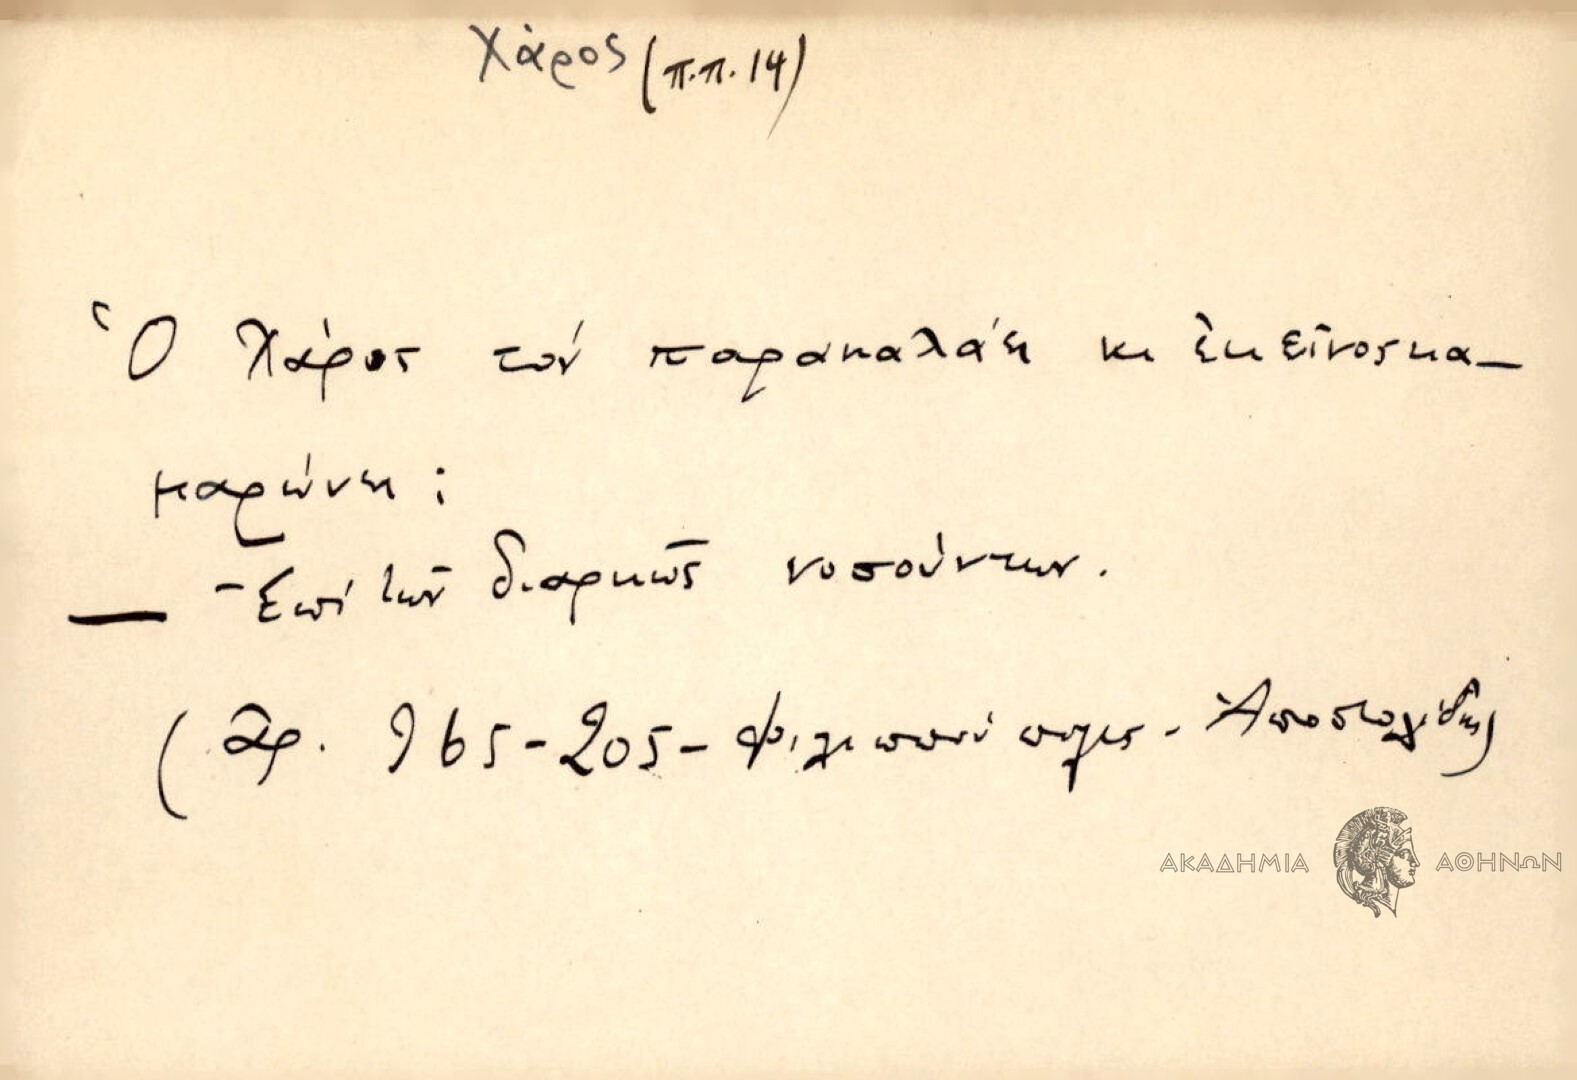 Χάρος (π.π. 14)
Ὁ Χάρος τόν παρακαλάει κι ἐκεῖνος κα-
μαρώνει;
— Ἐπί τῶν διαρκῶς νοσούντων.
(ἀρ. 965-205- Φιλιππούπολις - Ἀποστολίδης)
ΑΚΑΔΗΜΙΑ ΑΘΗΝΩΝ